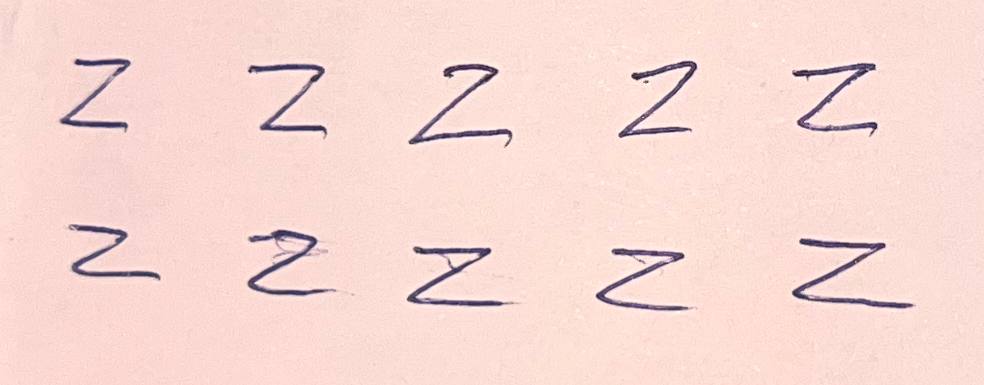 Z Z Z Z Z
Z Z Z Z Z